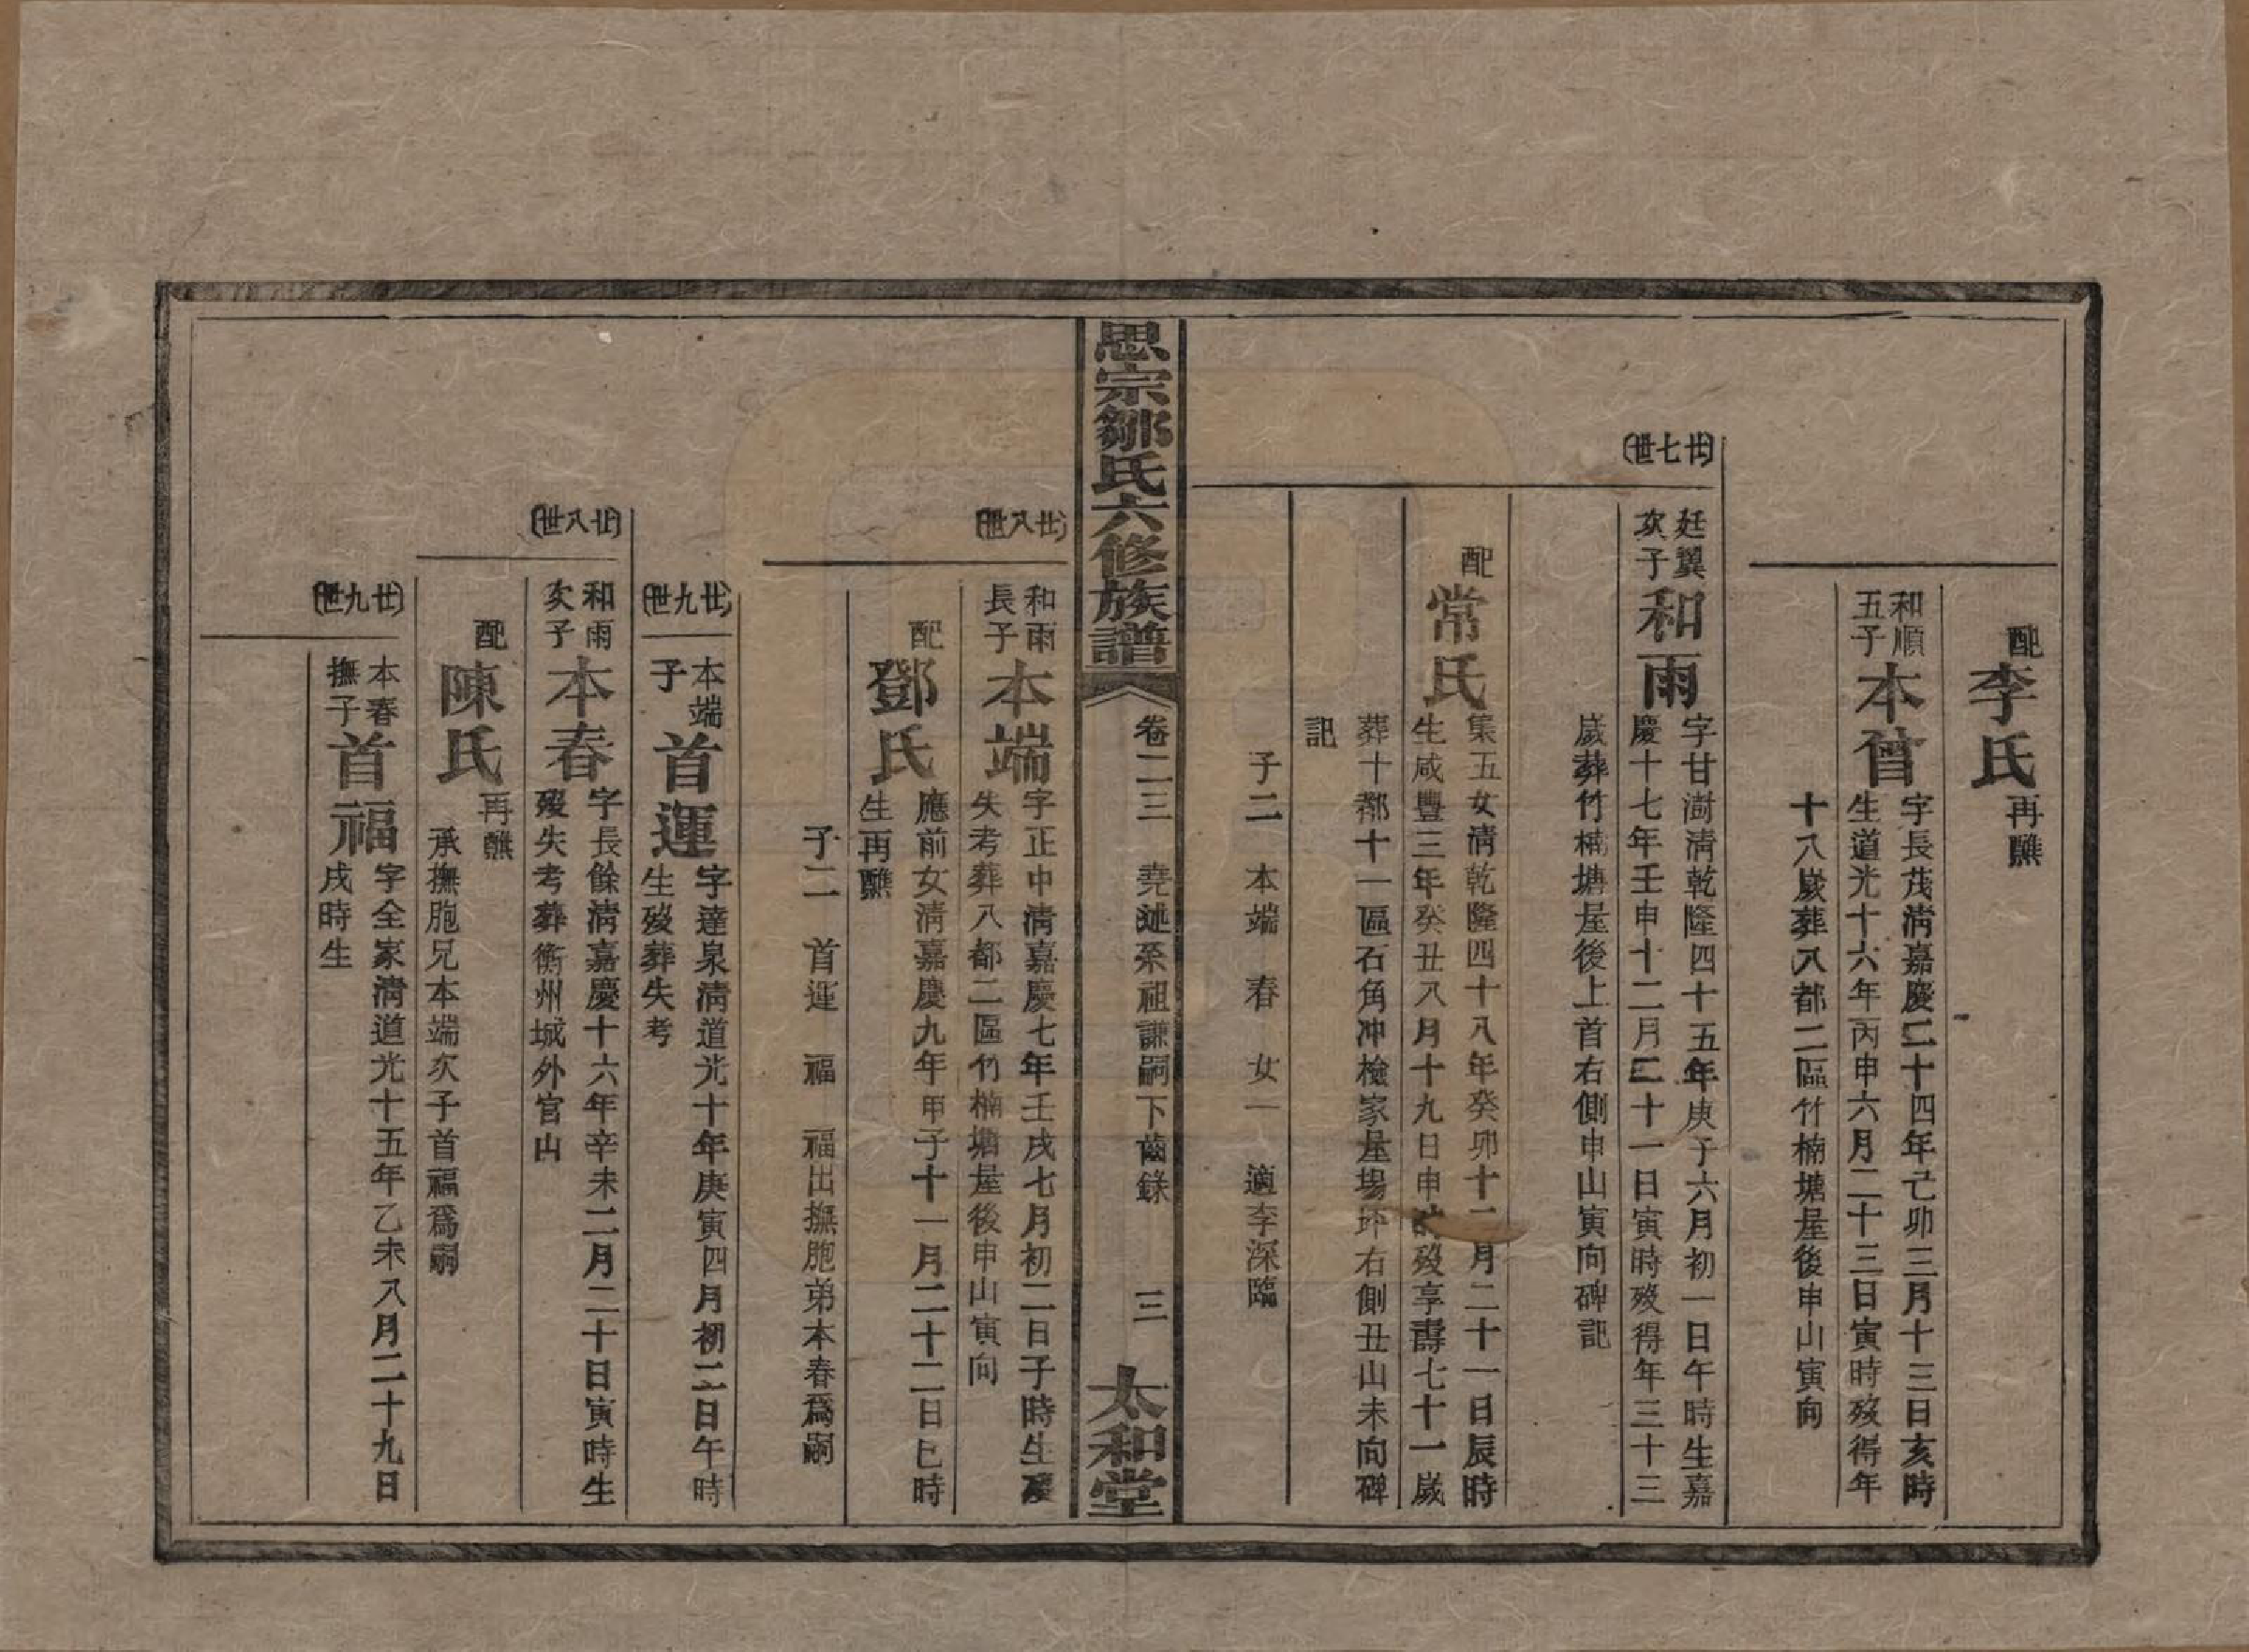 配
李氏
再醮
和順
五子
本曾
字長茂清嘉慶二十四年己卯三月十三日亥時
生道光十六年丙申六月二十三日寅時歿得年
十八歲葬八都二區竹楠塘屋後申山寅向
廿七世
廷翼
次子
和雨
字甘澍清乾隆四十五年庚子六月初一日午時生嘉
慶十七年壬申十二月二十一日寅時歿得年三十三
歲葬竹楠塘屋後上首右側申山寅向碑記
配
常氏
集五女清乾隆四十八年癸卯十二月二十一日辰時
生咸豐三年癸丑八月十九日申時歿享壽七十一歲
葬十都十一區石角冲檢家屋場坪右側丑山未向碑
記
子二 本端 春 女一 適李深臨
思宗鄒氏六修族譜
卷二三 堯述系祖謙嗣下齒錄 三
太和堂
廿八世
和雨
長子
本端
字正中清嘉慶七年壬戌七月初二日子時生歿
失考葬八都二區竹楠塘屋後申山寅向
配
鄧氏
應前女清嘉慶九年甲子十一月二十二日巳時
生再醮
子二 首運 福 福出撫胞弟本春爲嗣
廿九世
本端
子
首運
字達泉清道光十年庚寅四月初二日午時
生歿葬失考
廿八世
和雨
次子
本春
字長餘清嘉慶十六年辛未二月二十日寅時生
歿失考葬衡州城外官山
配
陳氏
再醮
承撫胞兄本端次子首福爲嗣
廿九世
本春
撫子
首福
字全家清道光十五年乙未八月二十九日
戌時生